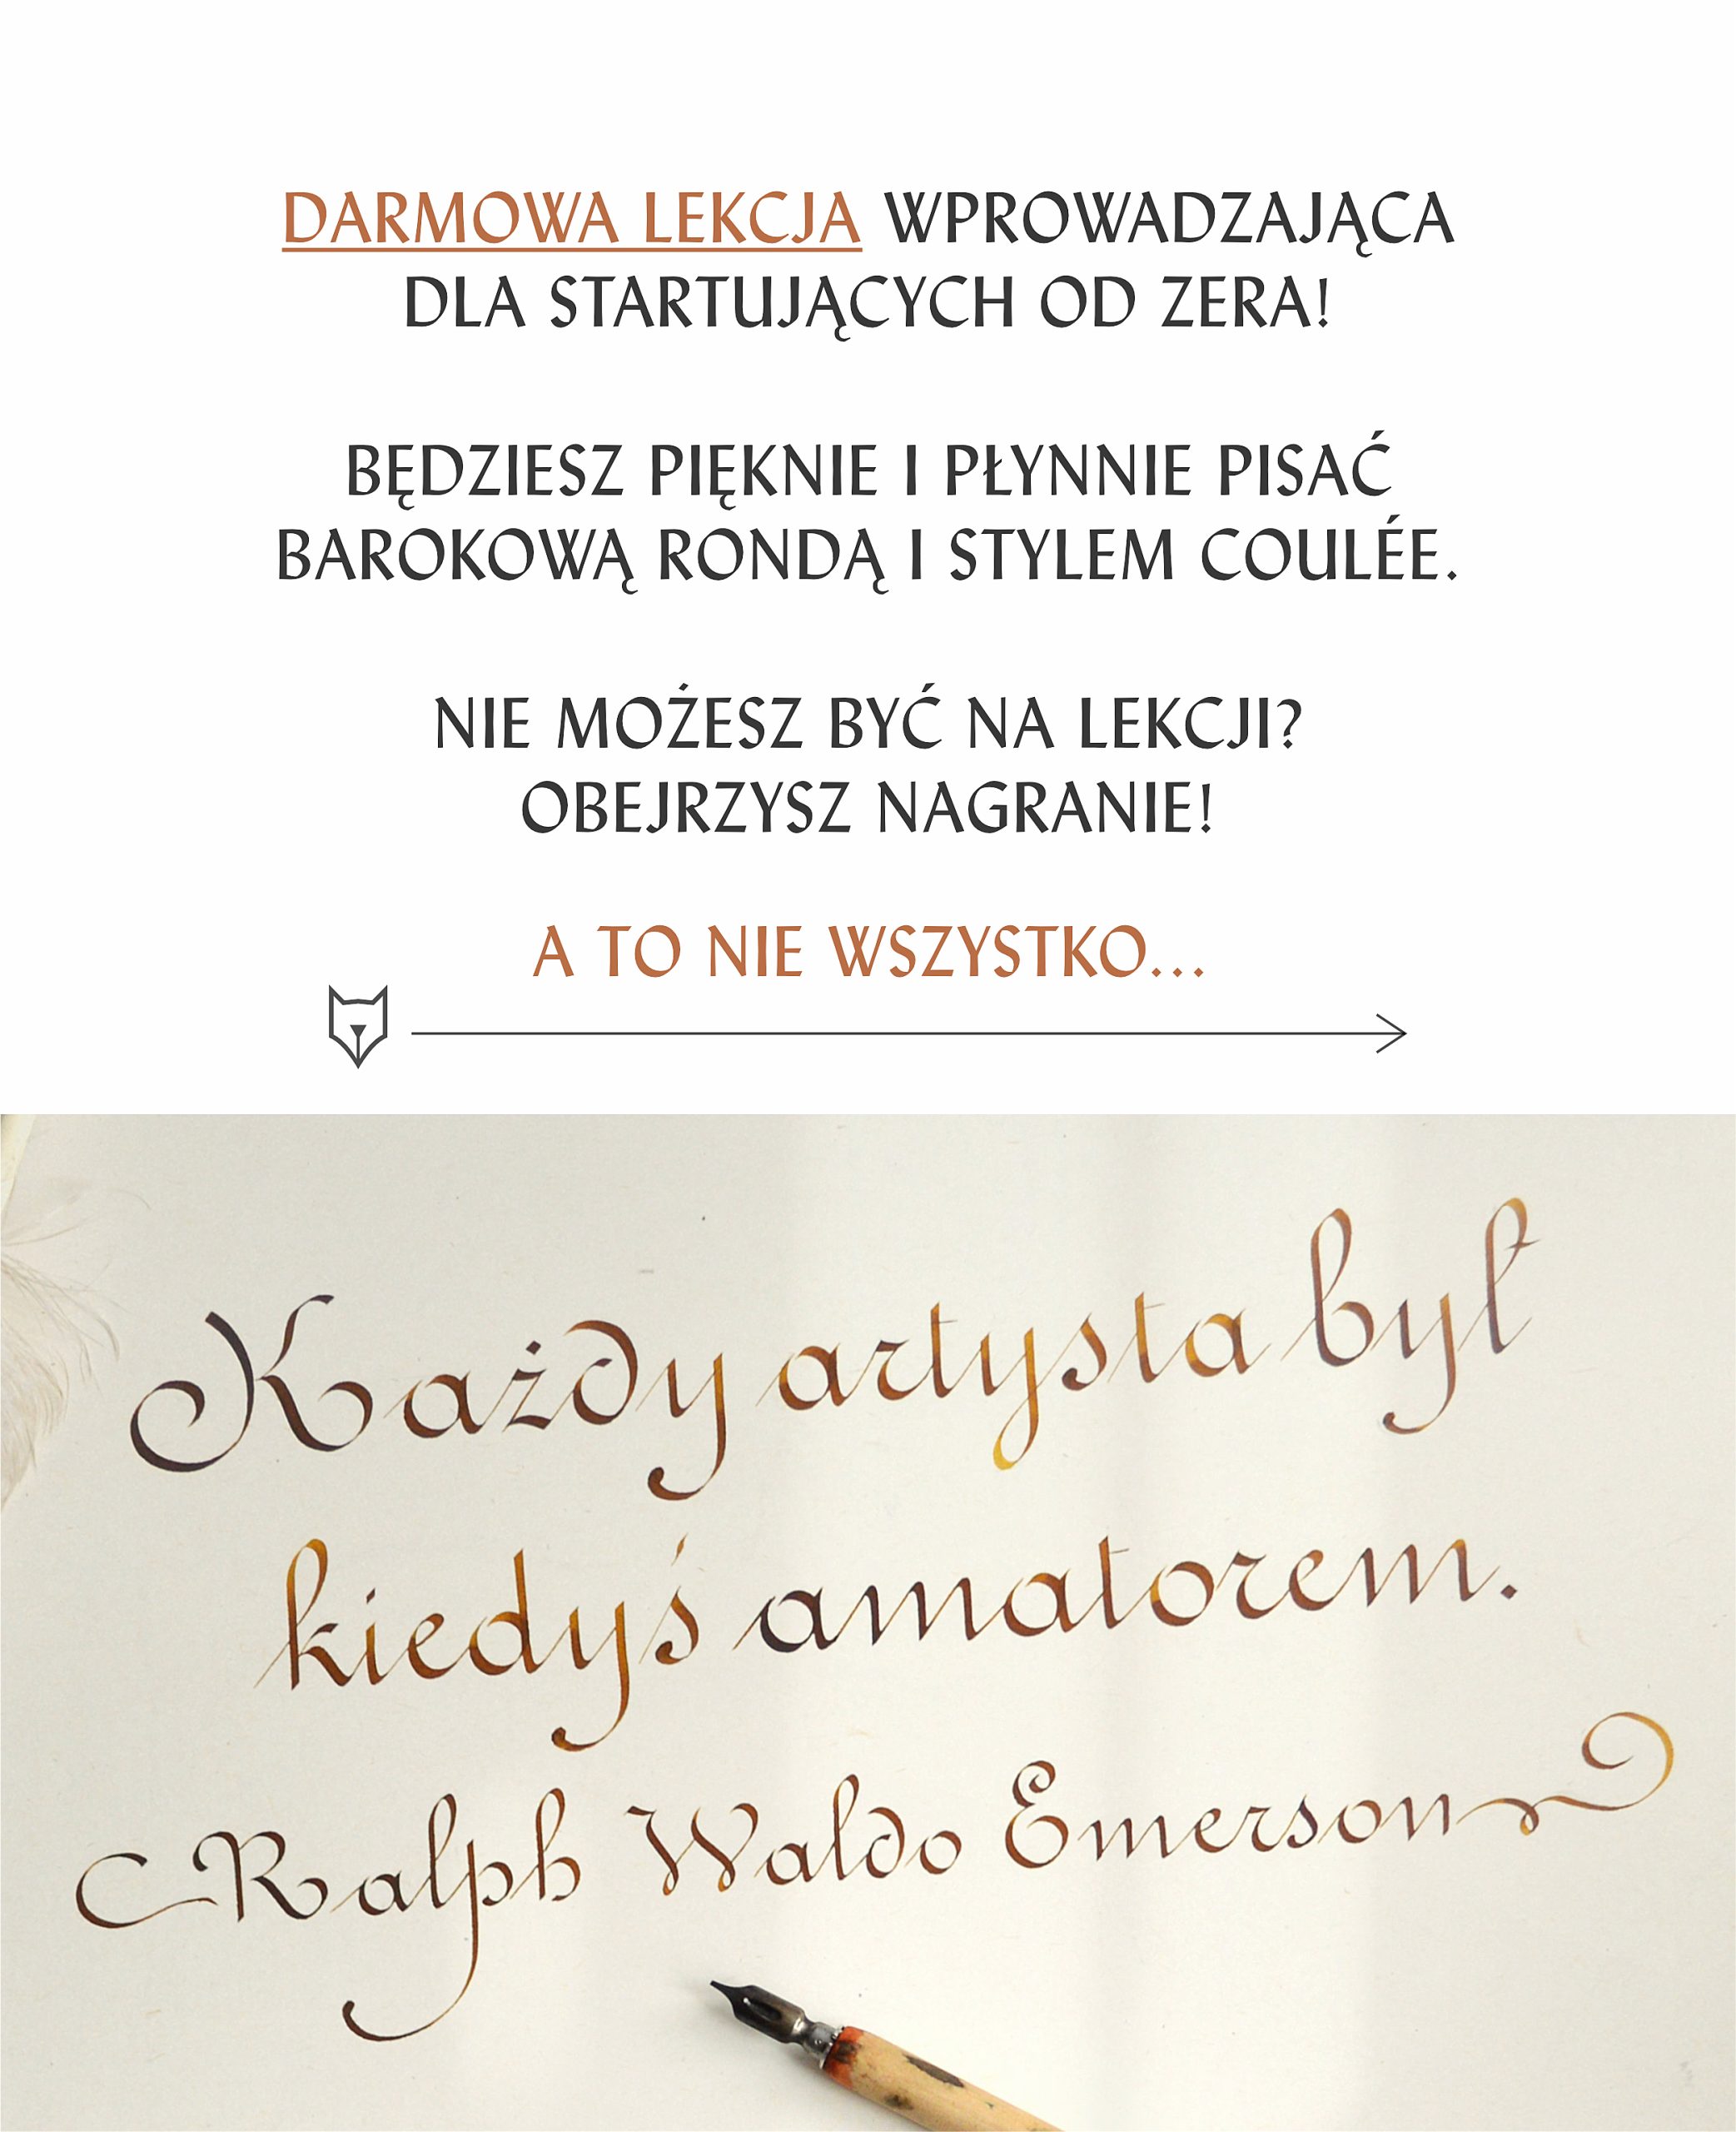 DARMOWA LEKCJA WPROWADZAJĄCA
DLA STARTUJĄCYCH OD ZERA!
BĘDZIESZ PIĘKNIE I PŁYNNIE PISAĆ
BAROKOWĄ RONDĄ I STYLEM COULÉE.
NIE MOŻESZ BYĆ NA LEKCJI?
OBEJRZYSZ NAGRANIE!
A TO NIE WSZYSTKO...
Każdy artysta był
kiedyś amatorem.
Ralph Waldo Emerson